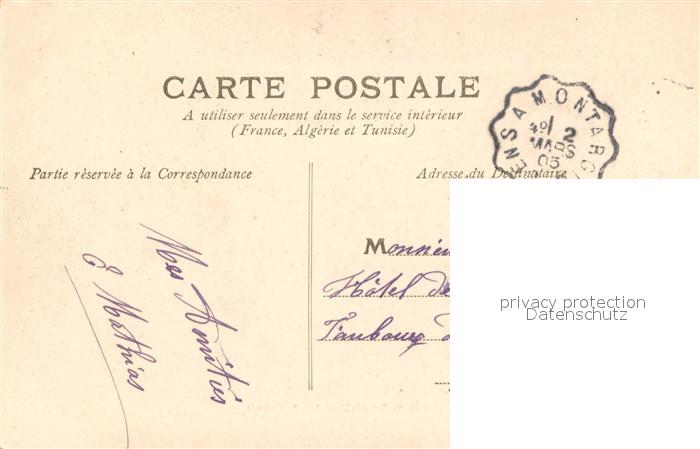 CARTE POSTALE
A utiliser seulement dans le service intérieur
(France, Algérie et Tunisie)
SENS A MONTARGIS
2
MARS
05
Partie réservée à la Correspondance
Adresse du Destinataire
Mes Amitiés
E Mathias
Monsieu
Hôtel de
Faubourg d
privacy protection
Datenschutz